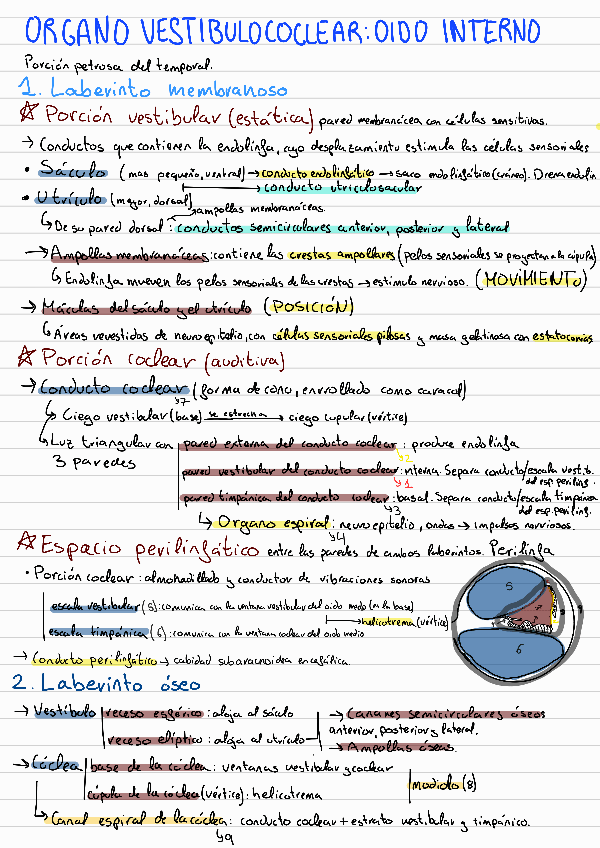 ORGANO VESTIBULOCOCLEAR: OIDO INTERNO
Porción petrosa del temporal.
1. Laberinto membranoso
☆ Porción vestibular (estática) pared membranácea con células sensitivas.
→ Conductos que contienen la endolinfa, cuyo desplazamiento estimula las células sensoriales
• Sáculo (mas pequeño, ventral) → conducto endolinfático → saco endolinfático (cráneo). Drena endolin
conducto utriculosacular
• Utrículo (mayor, dorsal)
ampollas membranáceas.
↳ De su pared dorsal: conductos semicirculares anterior, posterior y lateral
→ Ampollas membranáceas: contiene las crestas ampollares (pelos sensoriales se proyectan a la cúpula)
↳ Endolinfa mueven los pelos sensoriales de las crestas → estimulo nervioso. (MOVIMIENTO)
→ Máculas del sáculo y el utrículo (POSICIÓN)
↳ Áreas revestidas de neuroepitelio, con células sensoriales pilosas y masa gelatinosa con estatoconias
☆ Porción coclear (auditiva)
→ Conducto coclear (forma de cono, enrollado como caracol)
↳7
↳ Ciego vestibular (base) se estrecha → ciego cupular (vértice)
↳ Luz triangular con 3 paredes
pared externa del conducto coclear: produce endolinfa
↳2
pared vestibular del conducto coclear: interna. Separa conducto/escala vestib. del esp. periling.
↳1
pared timpánica del conducto coclear: basal. Separa conducto/escala timpánica del esp. periling.
↳3
↳ Organo espiral: neuroepitelio, ondas → impulsos nerviosos.
↳4
☆ Espacio perilinfático entre las paredes de ambos laberintos. Perilinfa
• Porción coclear: almohadillado y conductor de vibraciones sonoras
escala vestibular (5): comunica con la ventana vestibular del oido medio (en la base)
helicotrema (vértice)
escala timpánica (6): comunica con la ventana coclear del oido medio
5
6
→ Conducto perilinfático → cabidad subaracnoidea encefálica.
2. Laberinto óseo
→ Vestíbulo
receso esférico: aloja al sáculo
receso elíptico: aloja al utrículo
→ Canares semicirculares óseos anterior, posterior y lateral.
→ Ampollas óseas.
→ Cóclea
base de la cóclea: ventanas vestibular y coclear
cúpula de la cóclea (vértice): helicotrema
modiolo (8)
↳ Canal espiral de la cóclea: conducto coclear + estrato vestibular y timpánico.
↳9